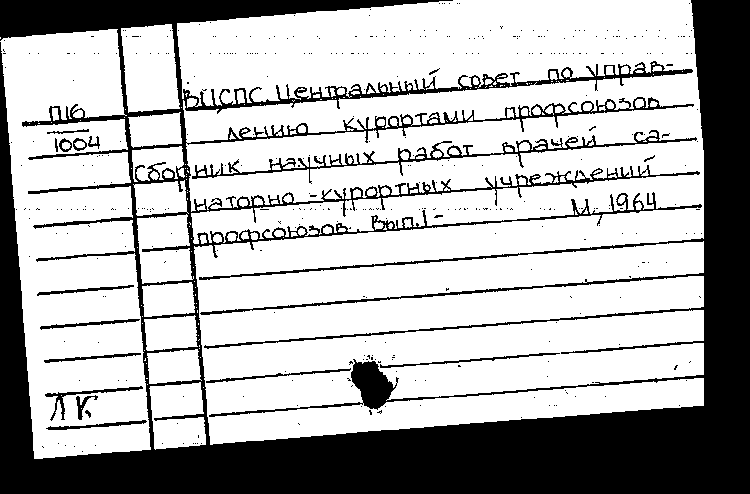 П16
1004
ВЦСПС. Центральный совет по управ-
лению курортами профсоюзов
Сборник научных работ врачей са-
наторно-курортных учреждений
профсоюзов. Вып. I- М., 1964
ЛК